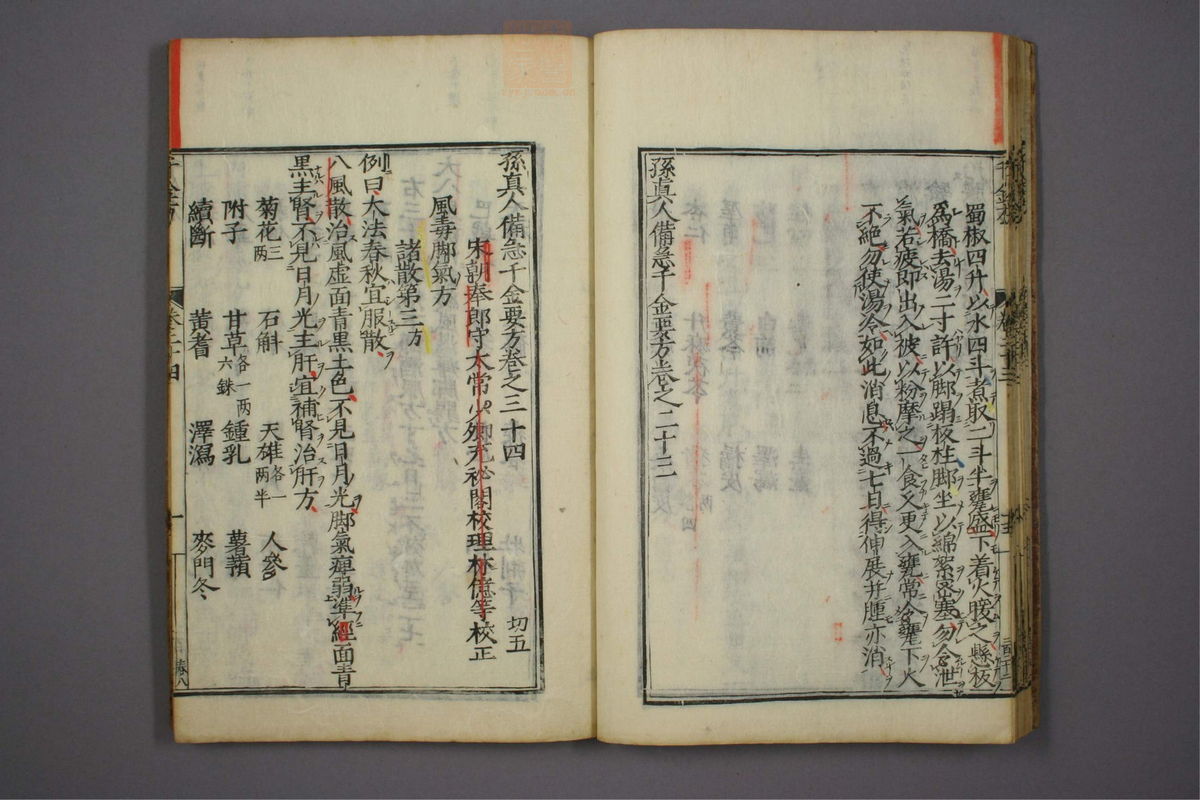 蜀椒四升以水四斗煮取二斗半甕盛下着火暖之懸板
為橋去湯二寸許以脚蹋板柱脚坐以綿絮密塞勿令泄
氣若疲即出入被以粉摩之一食久更入甕常令甕下火
不絕勿使湯冷如此消息不過七日得伸展并腫亦消
孫真人備急千金要方卷之二十三
孫真人備急千金要方卷之二十四
切五
宋朝奉郎守太常少卿充祕閣校理林億等校正
風毒脚氣方
諸散第三方
例曰大法春秋宜服散
八風散治風虛面青黑土色不見日月光脚氣痺弱準經面青
黑主腎不見日月光主肝宜補腎治肝方
菊花三兩 石斛 天雄各一兩半 人參
附子 甘草各一兩六銖 鍾乳 薯蕷
續斷 黃耆 澤瀉 麥門冬